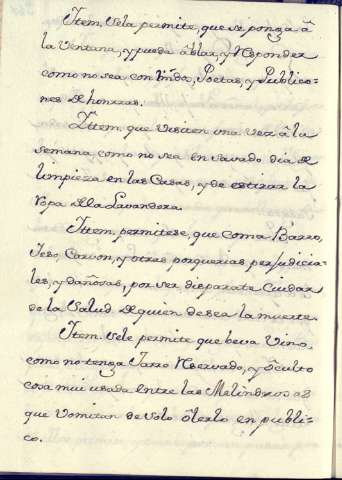 Item, sele permite, que se ponga â
la Ventana, y pueda âblar, y Responder
como no sea con Poetas, y Publico=
nes de honrras.
Yttem, que visiten una vez â la
semana como no sea en savado dia de
limpieza en las Casas, y de estirar la
ropa de la Lavandera.
Yttem, permitese, que coma Barro,
Ieso, Carvon, y otras porquerias perjudicia-
les, y dañosas, por ser disparate Cuidar
de la Salud de quien desea la muerte.
Item, sele permite que beva Vino,
como no tenga Jarro Reservado, y ôculto
cosa mui usada entre las Melindrosas
que Vomitan de solo ôlerlo en publi-
co.